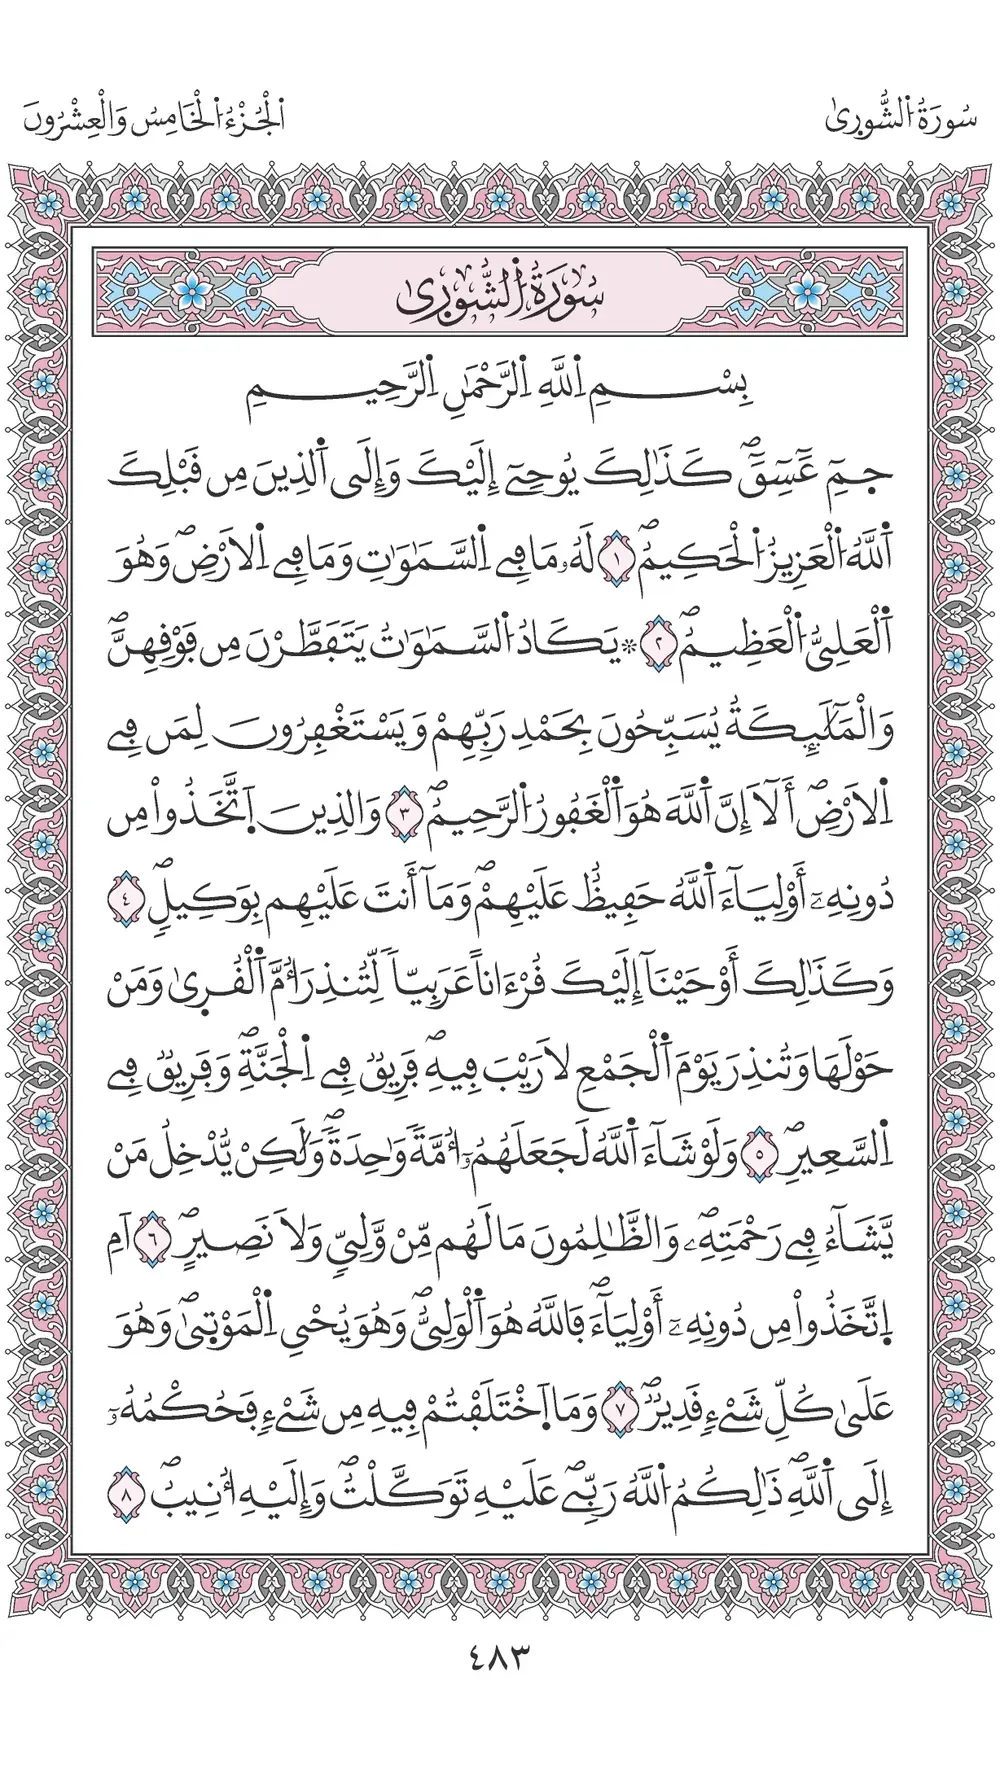 سُورَةُ الشُّورِىٰ
الْجُزْءُ الْخَامِسُ وَالْعِشْرُونَ
سُورَةُ الشُّورِىٰ
بِسْمِ اِ۬للَّهِ اِ۬لرَّحْمَٰنِ اِ۬لرَّحِيمِ
جٓمِٓ عَٓسِٓقَٓۖ كَذَٰلِكَ يُوحِےٓ إِلَيْكَ وَإِلَى اَ۬لذِينَ مِن قَبْلِكَ
اَ۬للَّهُ اُ۬لْعَزِيزُ اُ۬لْحَكِيمُۖ ١ لَهُۥ مَا فِے اِ۬لسَّمَٰوَٰتِ وَمَا فِے اِ۬لَارْضِۖ وَهُوَ
اَ۬لْعَلِيُّ اُ۬لْعَظِيمُۖ ٢ ۞ يَكَادُ اُ۬لسَّمَٰوَٰتُ يَتَفَطَّرْنَ مِن فَوْقِهِنَّۖ
وَالْمَلَٰٓئِكَةُ يُسَبِّحُونَ بِحَمْدِ رَبِّهِمْ وَيَسْتَغْفِرُونَ لِمَن فِے
اِ۬لَارْضِۖ أَلَآ إِنَّ اَ۬للَّهَ هُوَ اَ۬لْغَفُورُ اُ۬لرَّحِيمُۖ ٣ وَالذِينَ اَ۪تَّخَذُواْ مِن
دُونِهِۦٓ أَوْلِيَآءَ اَ۬للَّهُ حَفِيظٌ عَلَيْهِمْۖ وَمَآ أَنتَ عَلَيْهِم بِوَكِيلٖۖ ٤
وَكَذَٰلِكَ أَوْحَيْنَآ إِلَيْكَ قُرْءَاناً عَرَبِيّاٗ لِّتُنذِرَ أُمَّ اَ۬لْقُرِىٰ وَمَنْ
حَوْلَهَا وَتُنذِرَ يَوْمَ اَ۬لْجَمْعِ لَا رَيْبَ فِيهِۖ فَرِيقٞ فِے اِ۬لْجَنَّةِۖ وَفَرِيقٞ فِے
اِ۬لسَّعِيرِۖ ٥ وَلَوْ شَآءَ اَ۬للَّهُ لَجَعَلَهُمُۥٓ أُمَّةٗ وَٰحِدَةٗۖ وَلَٰكِنْ يُّدْخِلُ مَنْ
يَّشَآءُ فِے رَحْمَتِهِۦۖ وَالظَّٰلِمُونَ مَا لَهُم مِّنْ وَّلِيّٖ وَلَا نَصِيرٍۖ ٦ اَمِ
اِ۪تَّخَذُواْ مِن دُونِهِۦٓ أَوْلِيَآءَۖ فَاللَّهُ هُوَ اَ۬لْوَلِيُّۖ وَهُوَ يُحْيِ اِ۬لْمَوْتِىٰۖ وَهُوَ
عَلَىٰ كُلِّ شَےْءٖ قَدِيرٞۖ ٧ وَمَا اَ۪خْتَلَفْتُمْ فِيهِ مِن شَےْءٖ فَحُكْمُهُۥٓ
إِلَى اَ۬للَّهِۖ ذَٰلِكُمُ اُ۬للَّهُ رَبِّےۖ عَلَيْهِ تَوَكَّلْتُۖ وَإِلَيْهِ أُنِيبُۖ ٨
٤٨٣